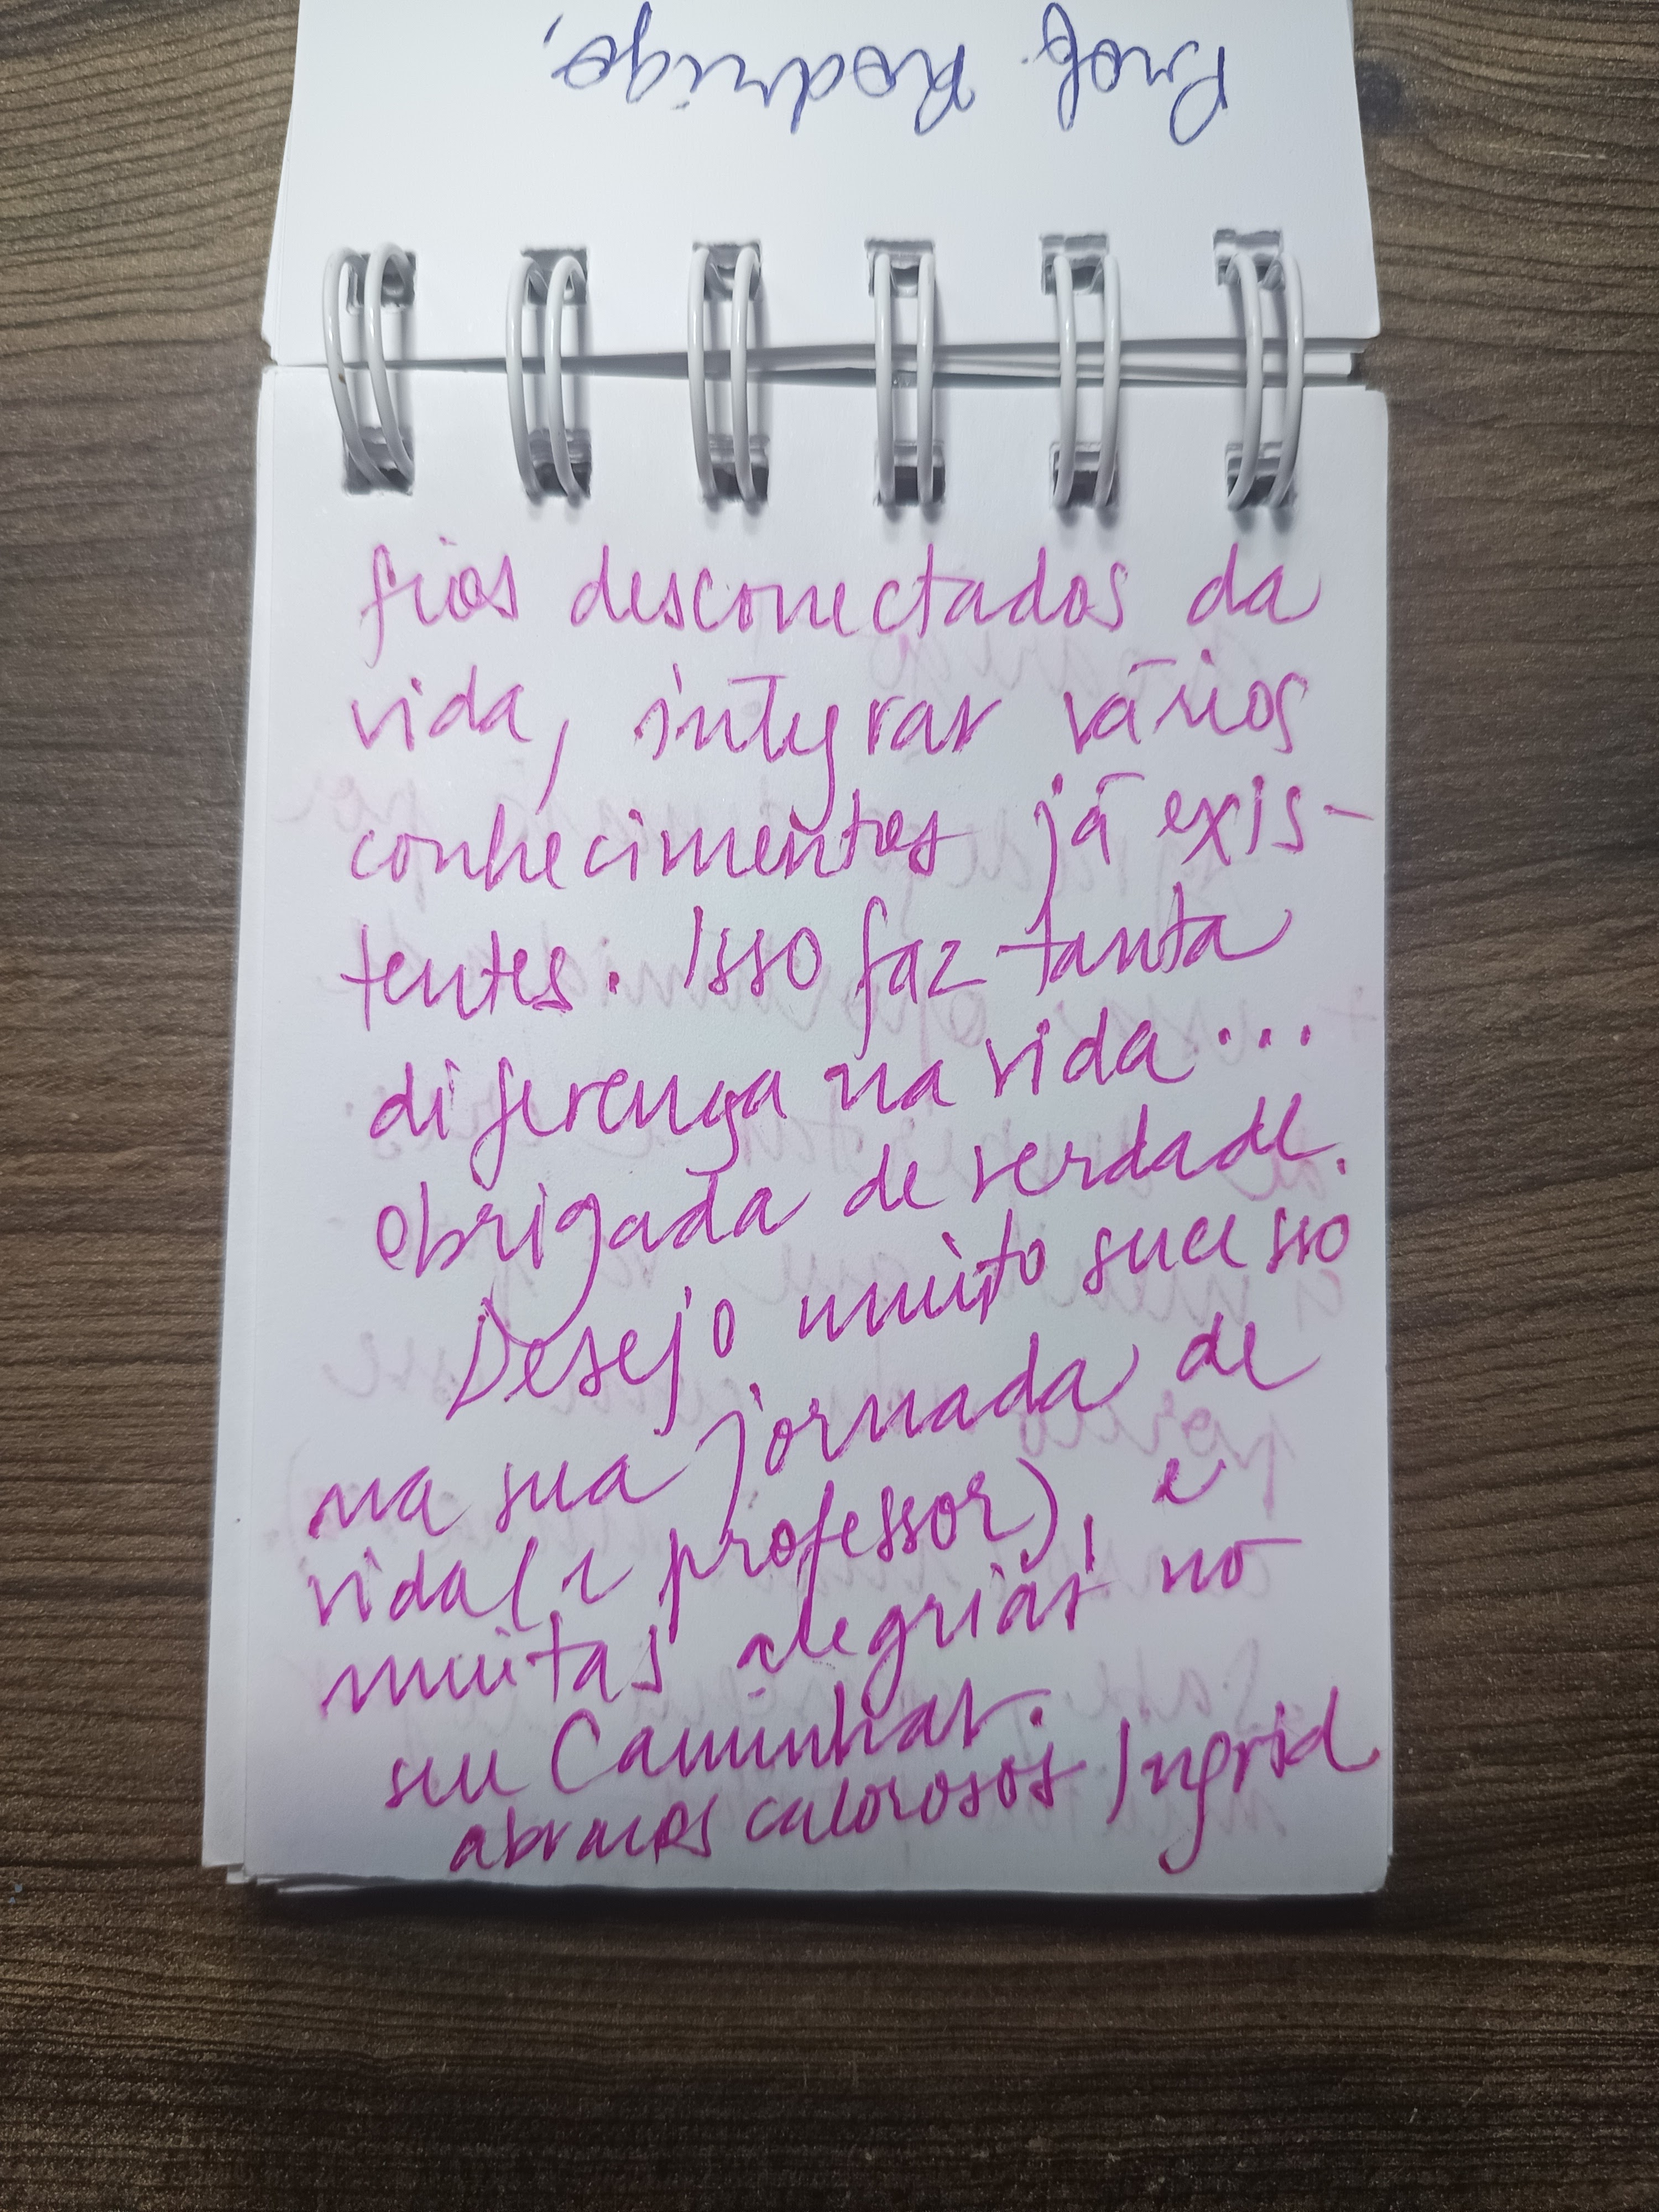 Prof. Rodrigo,
fios desconectados da
vida, integrar vários
conhecimentos já exis-
tentes. Isso faz tanta
diferença na vida...
Obrigada de verdade.
Desejo muito sucesso
na sua jornada de
vida (e professor), e
muitas alegrias no
seu Caminhar.
abraços calorosos Ingrid